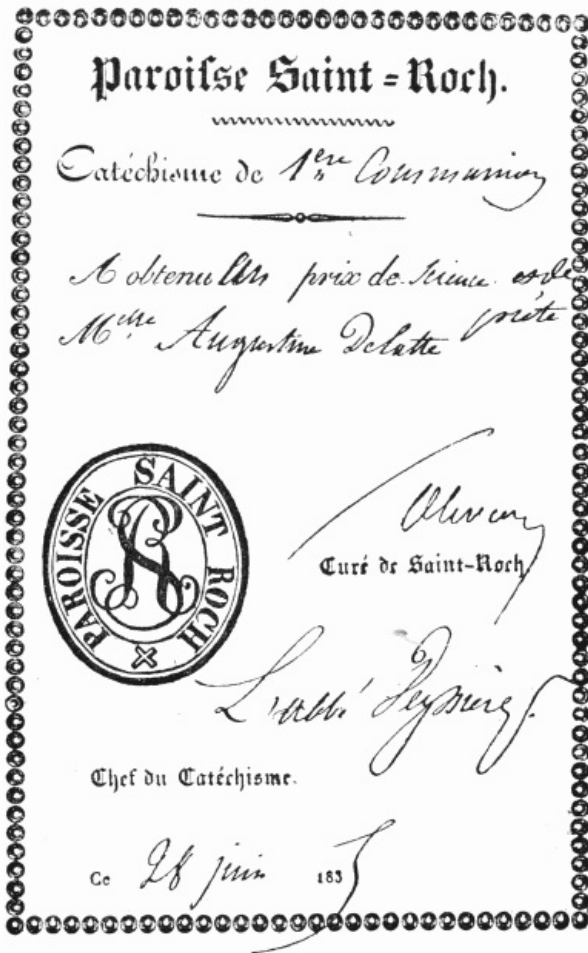 Paroisse Saint=Roch.
Catéchisme de 1ère Communion
A obtenu prix de Science et de
piété
Melle Augustine Delatte
PAROISSE SAINT ROCH
SR
Olivier
Curé de Saint-Roch
L'abbé
Chef du Catéchisme.
Ce 28 juin 1835